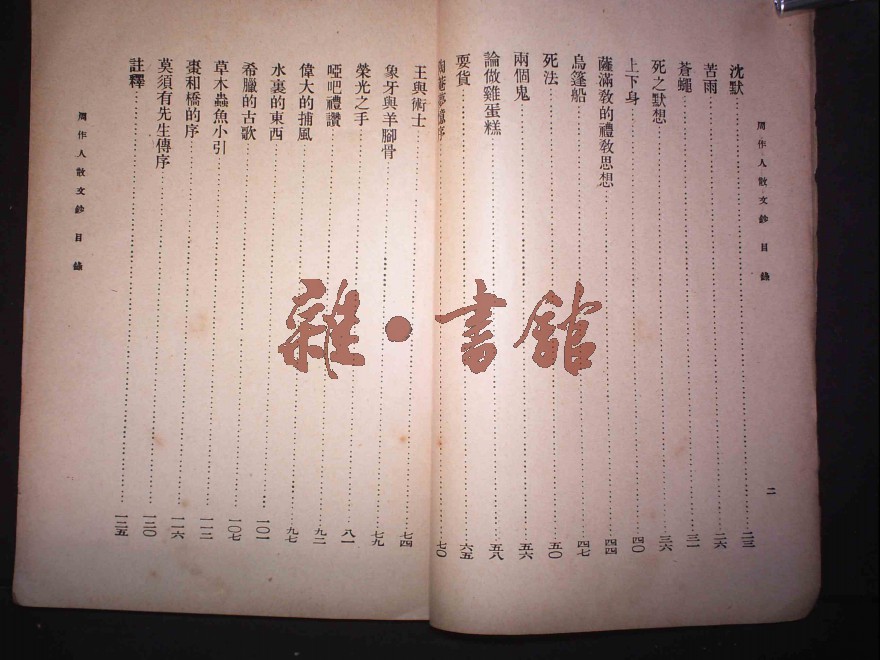 周作人散文鈔 目錄
二
沈默 二三
苦雨 二六
蒼蠅 三一
死之默想 三六
上下身 四〇
薩滿敎的禮敎思想 四四
烏篷船 四七
死法 五〇
兩個鬼 五六
論做雞蛋糕 五八
耍貨 六五
陶菴夢憶序 七〇
王與術士 七四
象牙與羊腳骨 七九
榮光之手 八一
啞吧禮讚 九二
偉大的捕風 九七
水裏的東西 一〇一
希臘的古歌 一〇七
草木蟲魚小引 一一二
棗和橋的序 一一六
莫須有先生傳序 一二〇
註釋 一二五
周作人散文鈔 目錄
雜·書館